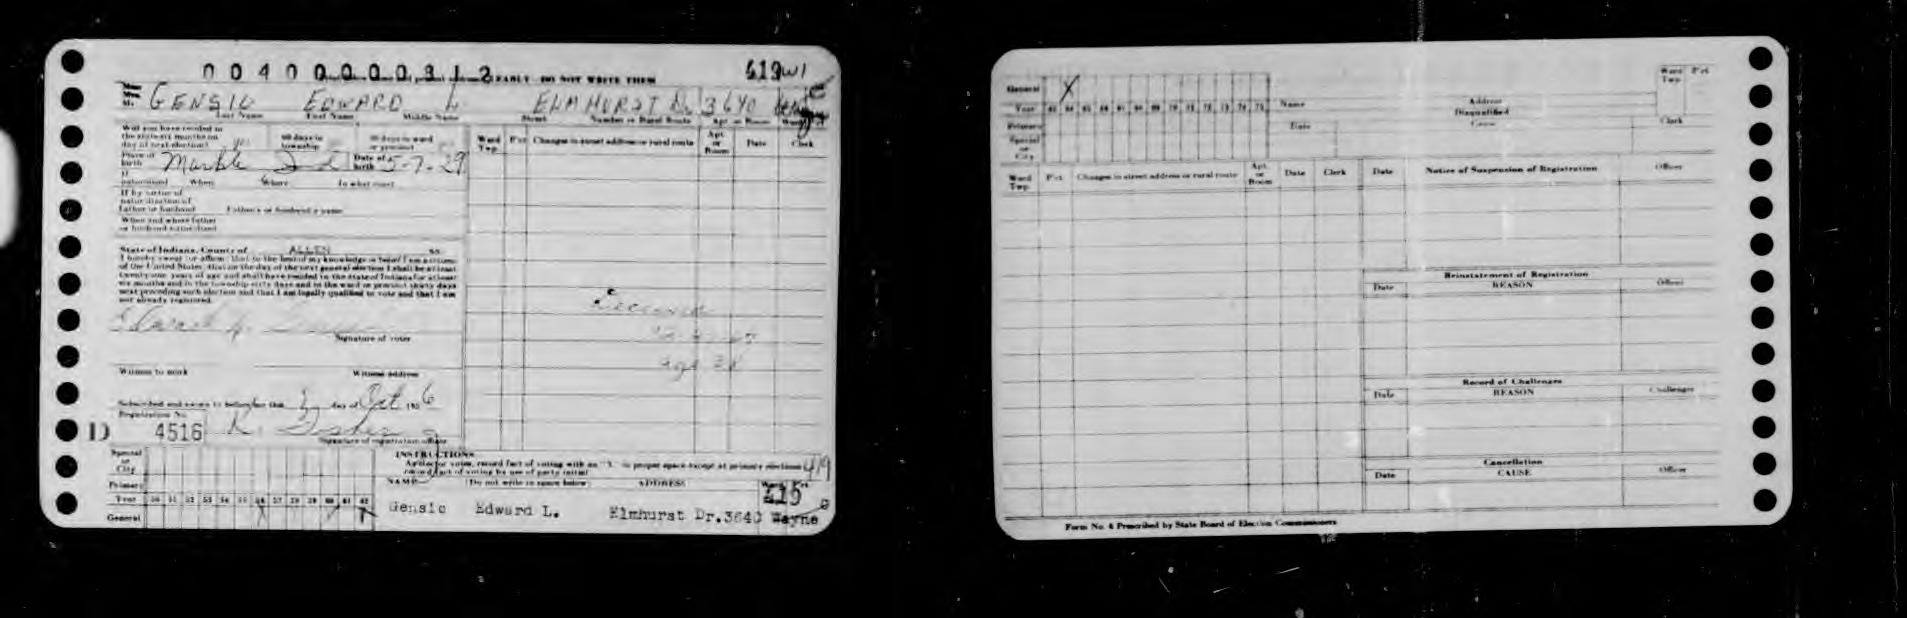 0040000312 EARLY DO NOT WRITE THEM 419 W1
GENSIC EDWARD L ELMHURST Dr 3640
Last Name First Name Middle Name Street Number or Rural Route Apt. or Room Ward
Will you have resided in
the state six months on
day of next election?
60 days in
township
30 days in ward
or precinct
Place of
birth Markle Ind Date of
birth 5-7-29
If
naturalized When Where In what court
If by virtue of
naturalization of
father or husband Father's or husband's name
When and where father
or husband naturalized
State of Indiana, County of ALLEN ss.
I hereby swear (or affirm) that to the best of my knowledge or belief I am a citizen
of the United States; that on the day of the next general election I shall be at least
twenty-one years of age and shall have resided in the state of Indiana for at least
six months and in the township sixty days and in the ward or precinct thirty days
next preceding such election and that I am legally qualified to vote and that I am
not already registered.
Edward L.
Signature of voter
Witness to mark Witness address
Subscribed and sworn to before me this day of Oct 195 6
Registration No.
D 4516 K. Fisher
Signature of registration officer
Ward
Twp. P'ct Changes in street address or rural route Apt.
or
Room Date Clerk
Deceased
age 38
Special
or
City
Primary
Year 50 51 52 53 54 55 56 57 58 59 60 61 62
General X
INSTRUCTIONS
After voter votes, record fact of voting with an "X" in proper space except at primary elections
record fact of voting by use of party initial 419
NAME (Do not write in space below) ADDRESS Ward P'ct
415
Gensic Edward L. Elmhurst Dr. 3640 Wayne
General X
Year 63 64 65 66 67 68 69 70 71 72 73 74 75
Primary
Special
or
City
Name Address Ward
Twp. P'ct
Disqualified
Date Cause Clerk
Ward
Twp. P'ct Changes in street address or rural route Apt.
or
Room Date Clerk Date Notice of Suspension of Registration Officer
Reinstatement of Registration
Date REASON Officer
Record of Challenges
Date REASON Challenger
Cancellation
Date CAUSE Officer
Form No. 4 Prescribed by State Board of Election Commissioners